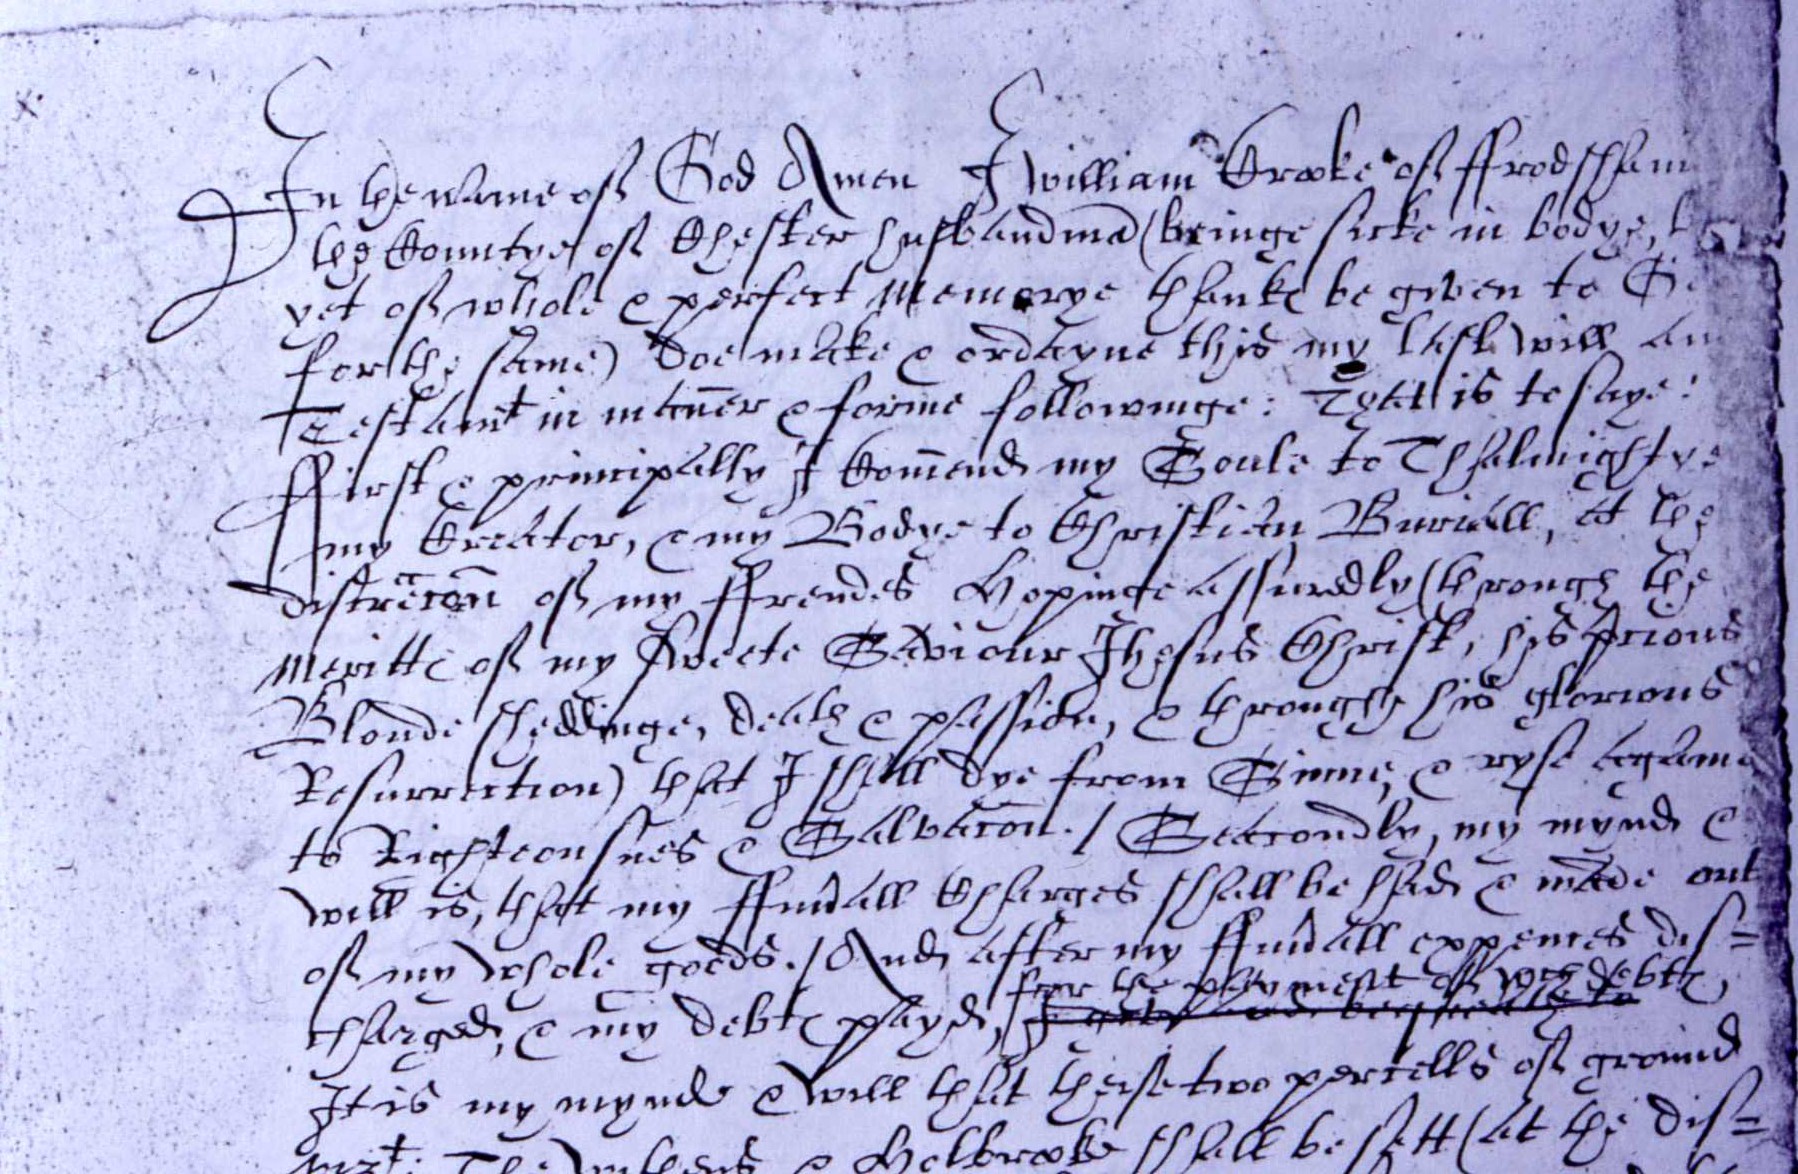 In the name of God Amen I William Crooke of ffrodsham
the Countye of Chester husbandmā (beinge sicke in bodye,
yet of whole & perfect memorye thanke be given to
for the same) doe make & ordayne this my last will an
Testam̄t in mān̄er & forme followinge: That is to saye:
ffirst & principally I Com̄end my Soule to Thalmightye
my Creator, & my Bodye to Christian Buriall, at the
discrec̄on of my ffrendes Hopinge assuredly (through the
meritte of my sweete Saviour Jhesus Christ, his p̄cious
Bloude sheddinge, death & passion, & through his glorious
Resurrection) that I shall dye from Sinne, & ryse againe
to Righteousnes & Salvac̄on./ Seacondly, my mynd &
will is, that my ffun̄all Charges shall be had & made out
of my whole goods./ And after my ffun̄all expences dis=
charged, & my debte payd, for the payment of wch debte,
It is my mynde & will that theise two percells of ground
vizt: The & Holbrooke shall be sett (at the dis=